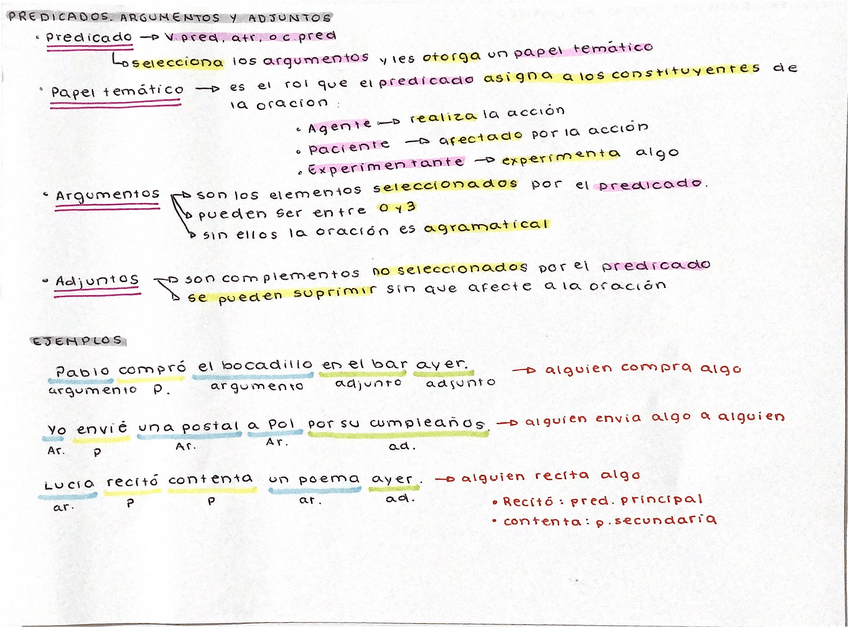 PREDICADOS, ARGUMENTOS Y ADJUNTOS
• Predicado → V pred, atr, o c pred
↳ selecciona los argumentos y les otorga un papel temático
• Papel temático → es el rol que el predicado asigna a los constituyentes de
la oración:
• Agente → realiza la acción
• Paciente → afectado por la acción
• Experimentante → experimenta algo
• Argumentos → son los elementos seleccionados por el predicado.
→ pueden ser entre 0 y 3
→ sin ellos la oración es agramatical
• Adjuntos → son complementos no seleccionados por el predicado
→ se pueden suprimir sin que afecte a la oración
EJEMPLOS
Pablo compró el bocadillo en el bar ayer. → alguien compra algo
argumento P. argumento adjunto adjunto
Yo envié una postal a Pol por su cumpleaños. → alguien envia algo a alguien
Ar. P Ar. Ar. ad.
Lucía recitó contenta un poema ayer. → alguien recita algo
ar. P P ar. ad.
• Recitó: pred. principal
• contenta: p. secundaria